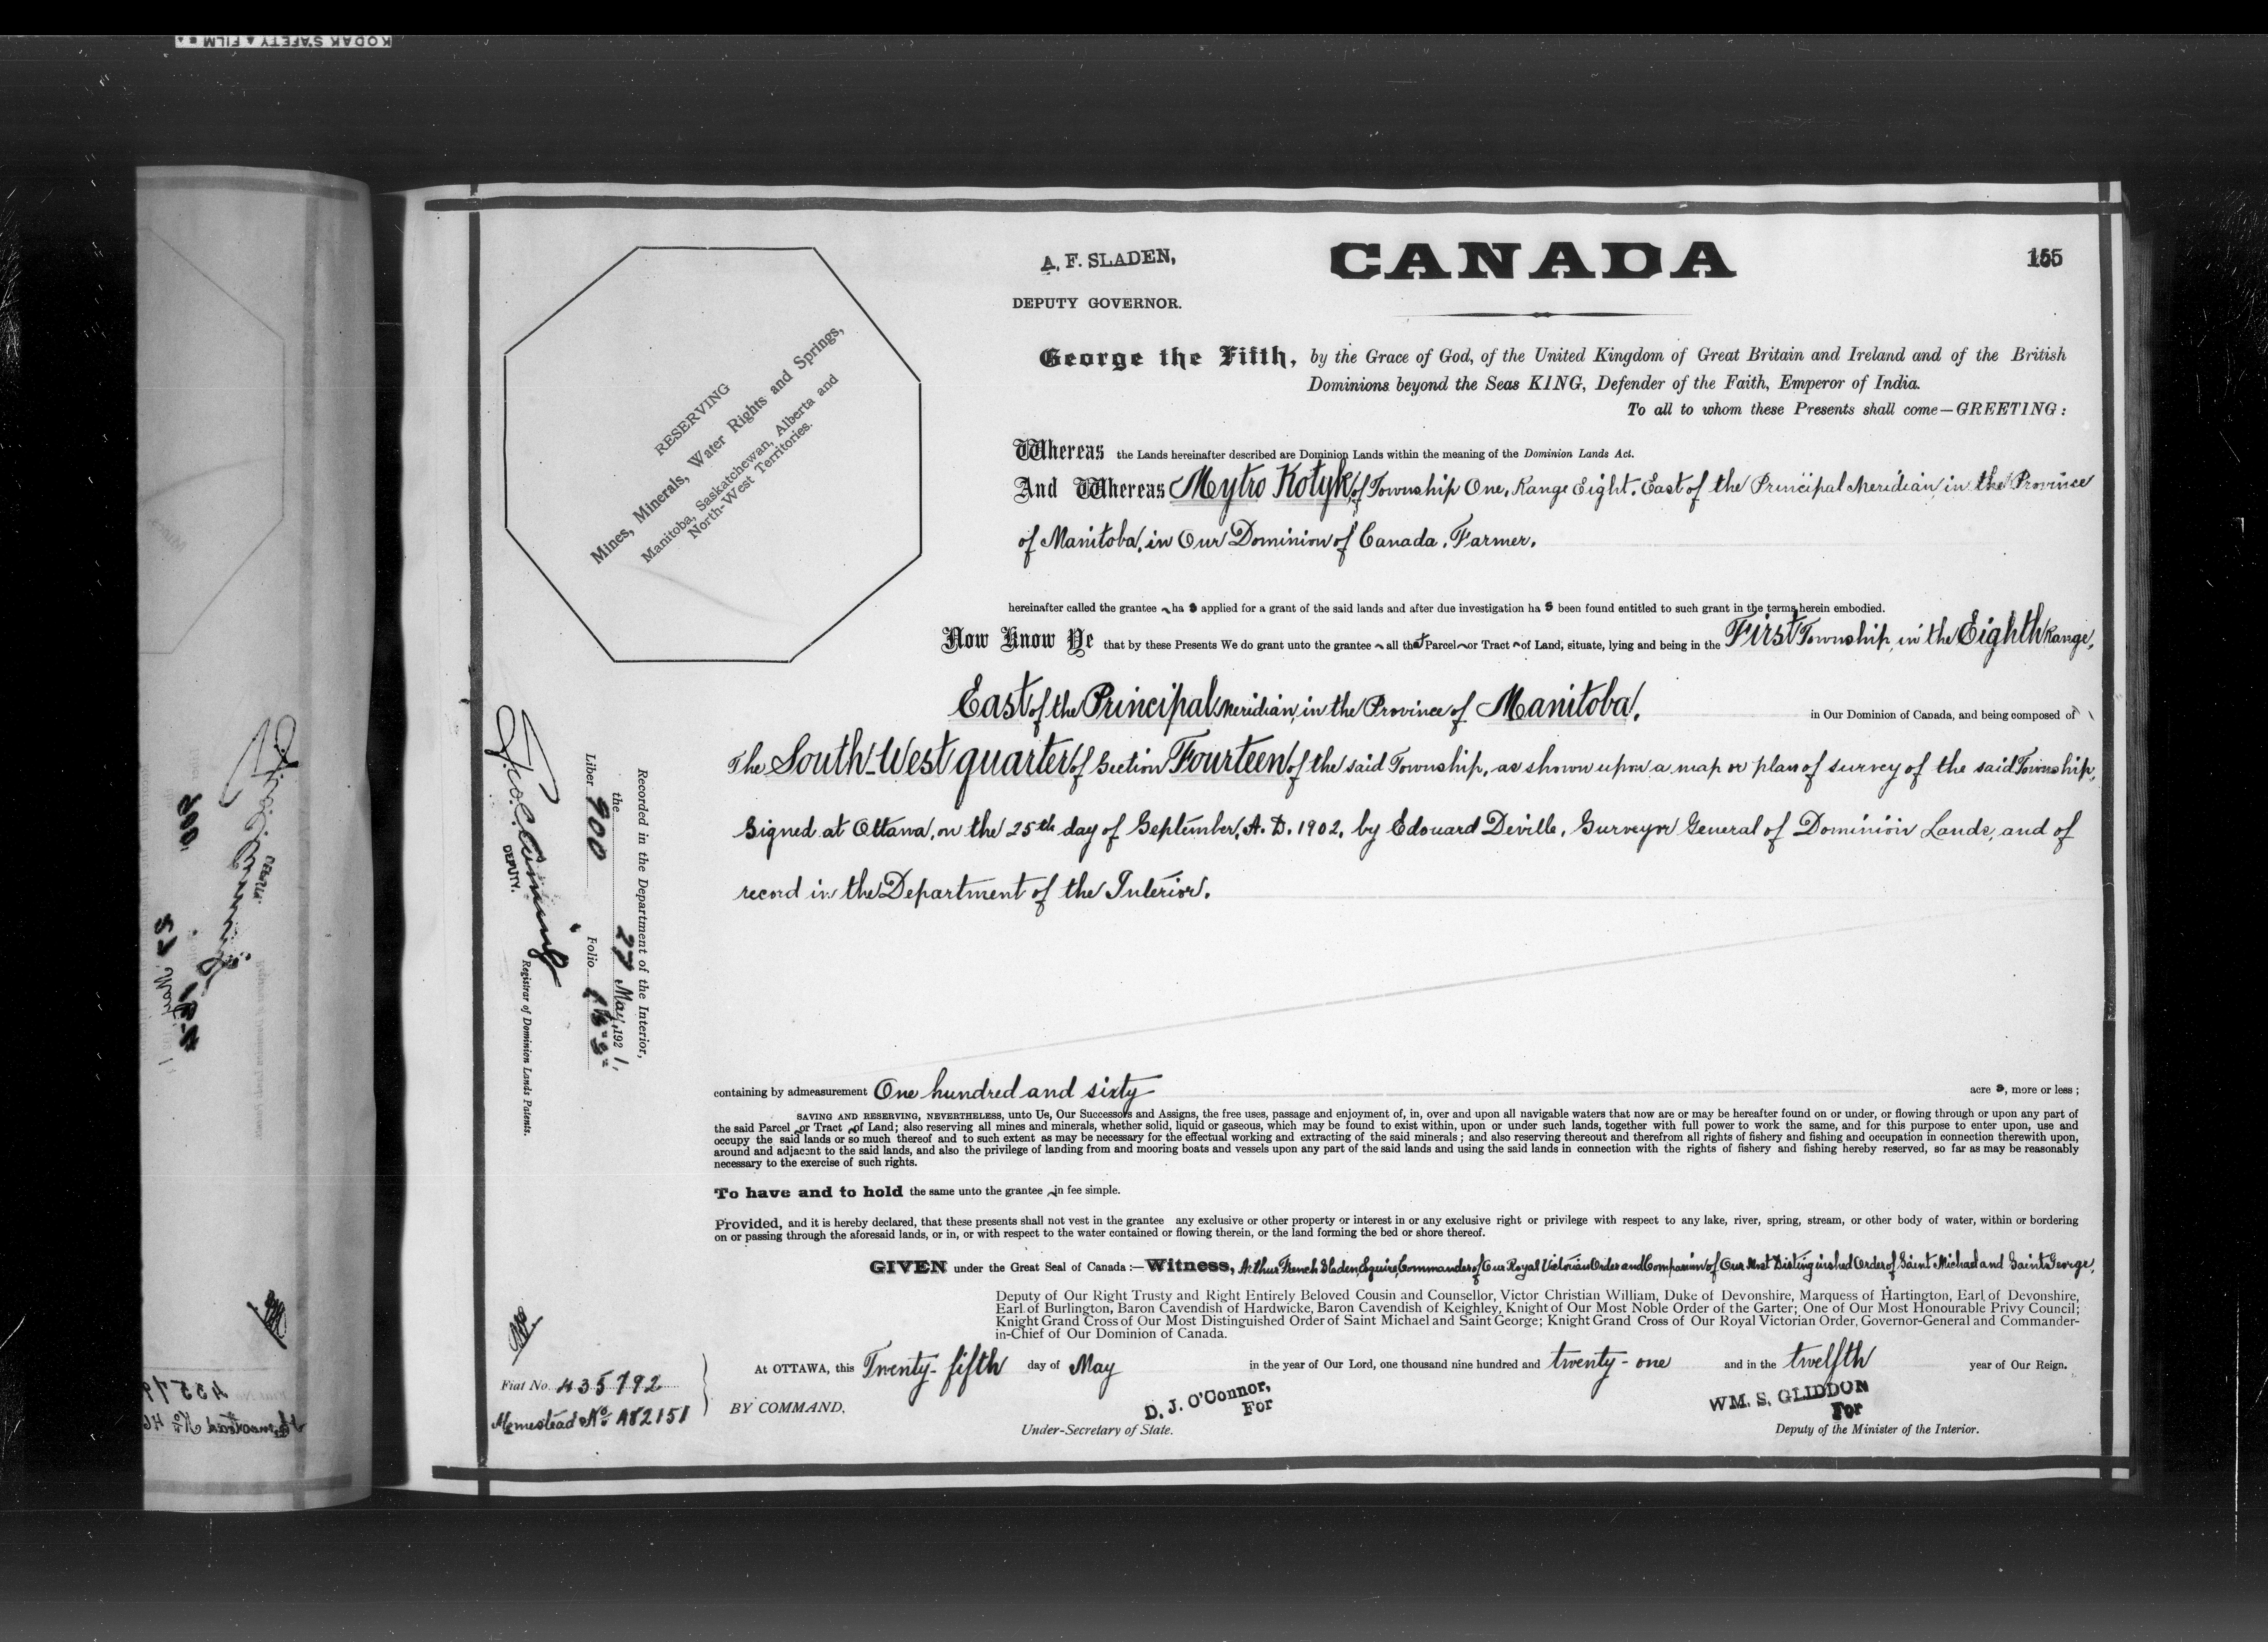 KODAK SAFETY FILM
A. F. SLADEN,
DEPUTY GOVERNOR.
CANADA
155
George the Fifth, by the Grace of God, of the United Kingdom of Great Britain and Ireland and of the British
Dominions beyond the Seas KING, Defender of the Faith, Emperor of India.
To all to whom these Presents shall come—GREETING:
RESERVING
Mines, Minerals, Water Rights and Springs,
Manitoba, Saskatchewan, Alberta and
North-West Territories.
Whereas the Lands hereinafter described are Dominion Lands within the meaning of the Dominion Lands Act.
And Whereas Mytro Kotyk, of Township One, Range Eight, East of the Principal Meridian, in the Province
of Manitoba, in Our Dominion of Canada, Farmer,
hereinafter called the grantee has applied for a grant of the said lands and after due investigation has been found entitled to such grant in the terms herein embodied.
Now Know Ye that by these Presents We do grant unto the grantee all that Parcel or Tract of Land, situate, lying and being in the First Township, in the Eighth Range,
East of the Principal Meridian, in the Province of Manitoba, in Our Dominion of Canada, and being composed of
The South-West quarter of Section Fourteen of the said Township, as shown upon a map or plan of survey of the said Township,
signed at Ottawa, on the 25th day of September, A. D. 1902, by Edouard Deville, Surveyor General of Dominion Lands, and of
record in the Department of the Interior.
Recorded in the Department of the Interior,
the 27 May, 1921,
Liber 900 Folio 155
DEPUTY.
Registrar of Dominion Lands Patents.
containing by admeasurement One hundred and sixty acres, more or less;
SAVING AND RESERVING, NEVERTHELESS, unto Us, Our Successors and Assigns, the free uses, passage and enjoyment of, in, over and upon all navigable waters that now are or may be hereafter found on or under, or flowing through or upon any part of
the said Parcel or Tract of Land; also reserving all mines and minerals, whether solid, liquid or gaseous, which may be found to exist within, upon or under such lands, together with full power to work the same, and for this purpose to enter upon, use and
occupy the said lands or so much thereof and to such extent as may be necessary for the effectual working and extracting of the said minerals; and also reserving thereout and therefrom all rights of fishery and fishing and occupation in connection therewith upon,
around and adjacent to the said lands, and also the privilege of landing from and mooring boats and vessels upon any part of the said lands and using the said lands in connection with the rights of fishery and fishing hereby reserved, so far as may be reasonably
necessary to the exercise of such rights.
To have and to hold the same unto the grantee in fee simple.
Provided, and it is hereby declared, that these presents shall not vest in the grantee any exclusive or other property or interest in or any exclusive right or privilege with respect to any lake, river, spring, stream, or other body of water, within or bordering
on or passing through the aforesaid lands, or in, or with respect to the water contained or flowing therein, or the land forming the bed or shore thereof.
GIVEN under the Great Seal of Canada:—Witness, Arthur French Sladen, Esquire, Commander of Our Royal Victorian Order and Companion of Our Most Distinguished Order of Saint Michael and Saint George,
Deputy of Our Right Trusty and Right Entirely Beloved Cousin and Counsellor, Victor Christian William, Duke of Devonshire, Marquess of Hartington, Earl of Devonshire,
Earl of Burlington, Baron Cavendish of Hardwicke, Baron Cavendish of Keighley, Knight of Our Most Noble Order of the Garter; One of Our Most Honourable Privy Council;
Knight Grand Cross of Our Most Distinguished Order of Saint Michael and Saint George; Knight Grand Cross of Our Royal Victorian Order, Governor-General and Commander-
in-Chief of Our Dominion of Canada.
At OTTAWA, this Twenty-fifth day of May in the year of Our Lord, one thousand nine hundred and twenty-one and in the twelfth year of Our Reign.
Fiat No. 435792
Homestead No. A82151
BY COMMAND,
D. J. O'Connor,
For
Under-Secretary of State.
WM. S. GLIDDON
For
Deputy of the Minister of the Interior.